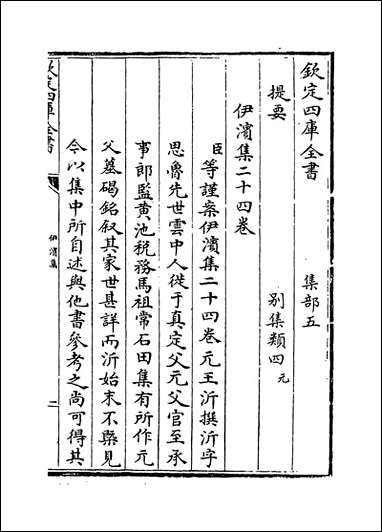 欽定四庫全書 集部五
提要 別集類四 元
伊濱集二十四卷
臣等謹案伊濱集二十四卷元王沂撰沂字
思魯先世雲中人徙于真定父元父官至承
事郎監黃池稅務馬祖常石田集有所作元
父墓碣銘叙其家世甚詳而沂始末不槩見
今以集中所自述與他書參考之尚可得其
欽定四庫全書
伊濱集